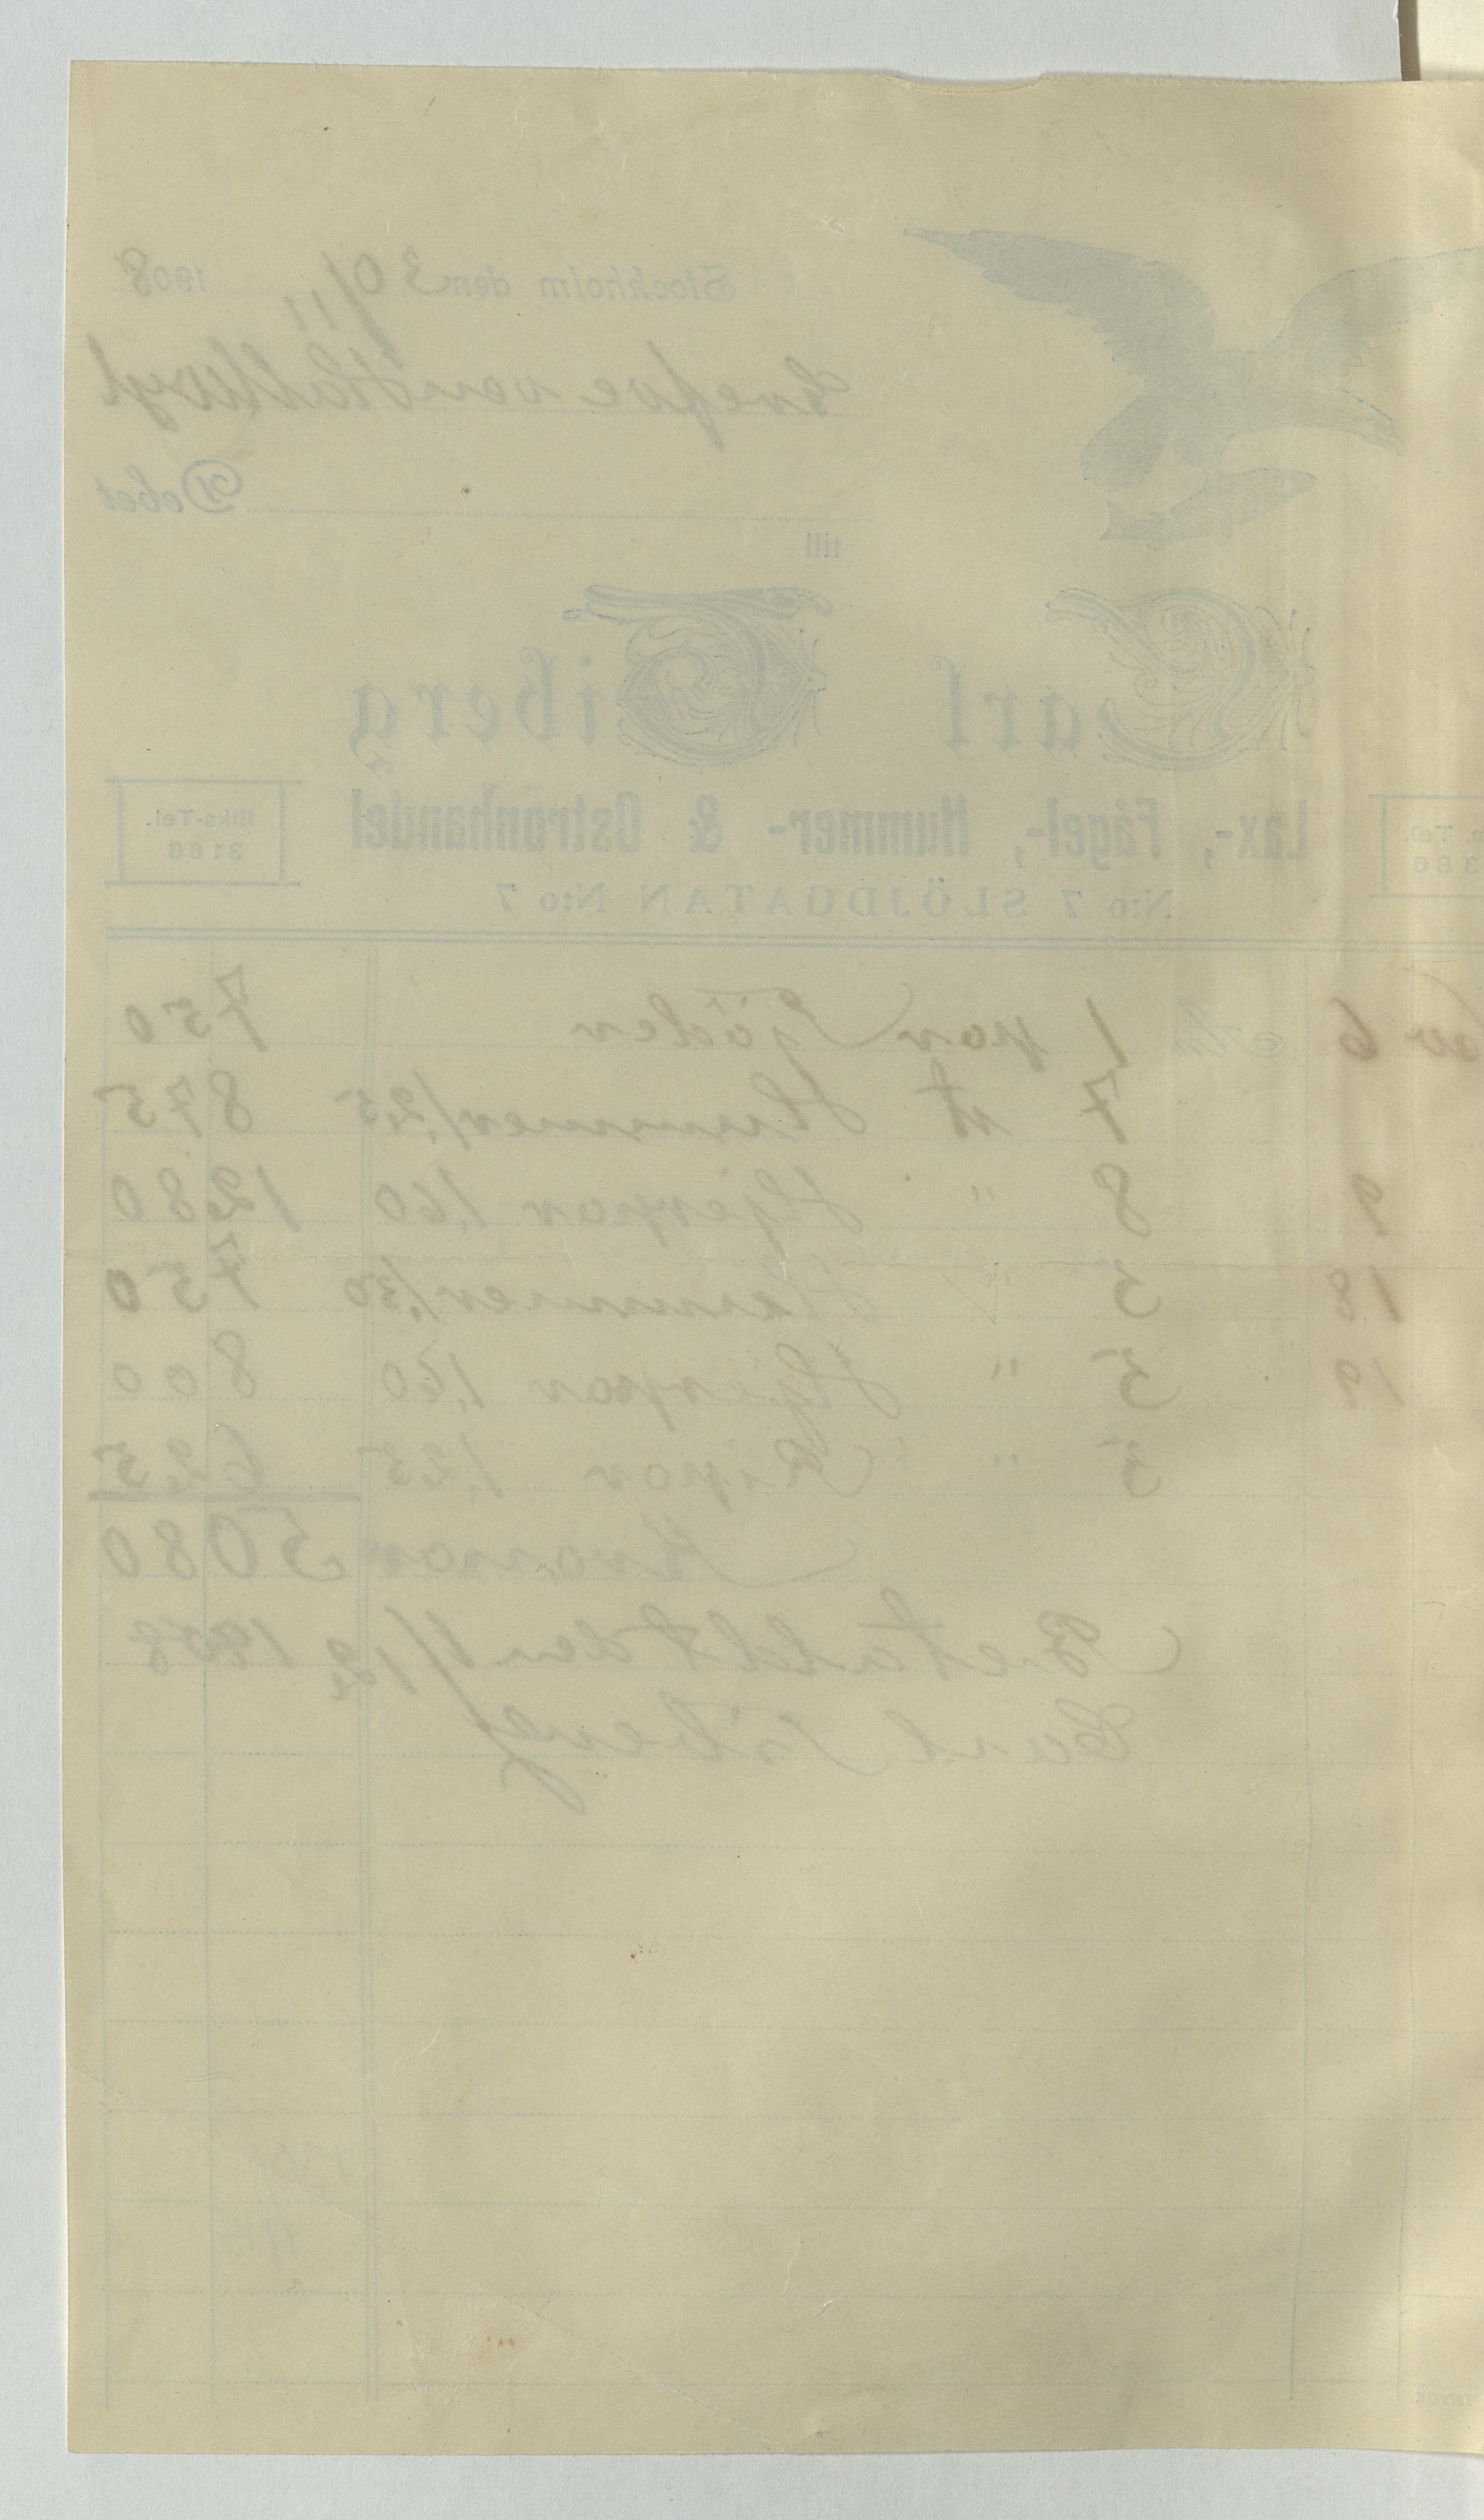 Stockholm den 30/11 1908
Grefve von Hallwyl
Debet
till
Carl Tiberg
Lax-, Fågel-, Hummer- & Ostronhandel
Riks-Tel.
3166
N:o 7 SLÖJDGATAN N:o 7
6 1 par 7 50
7 st Hummer 1,25 8 75
9 8 " Hjerpar 1,60 12 80
18 5 " Hummer 1,50 7 50
19 5 " Hjerpar 1,60 8 00
5 " Ripor 1,25 6 25
Kronor 50 80
Betaldt den 1/12 1908
Carl Tiberg